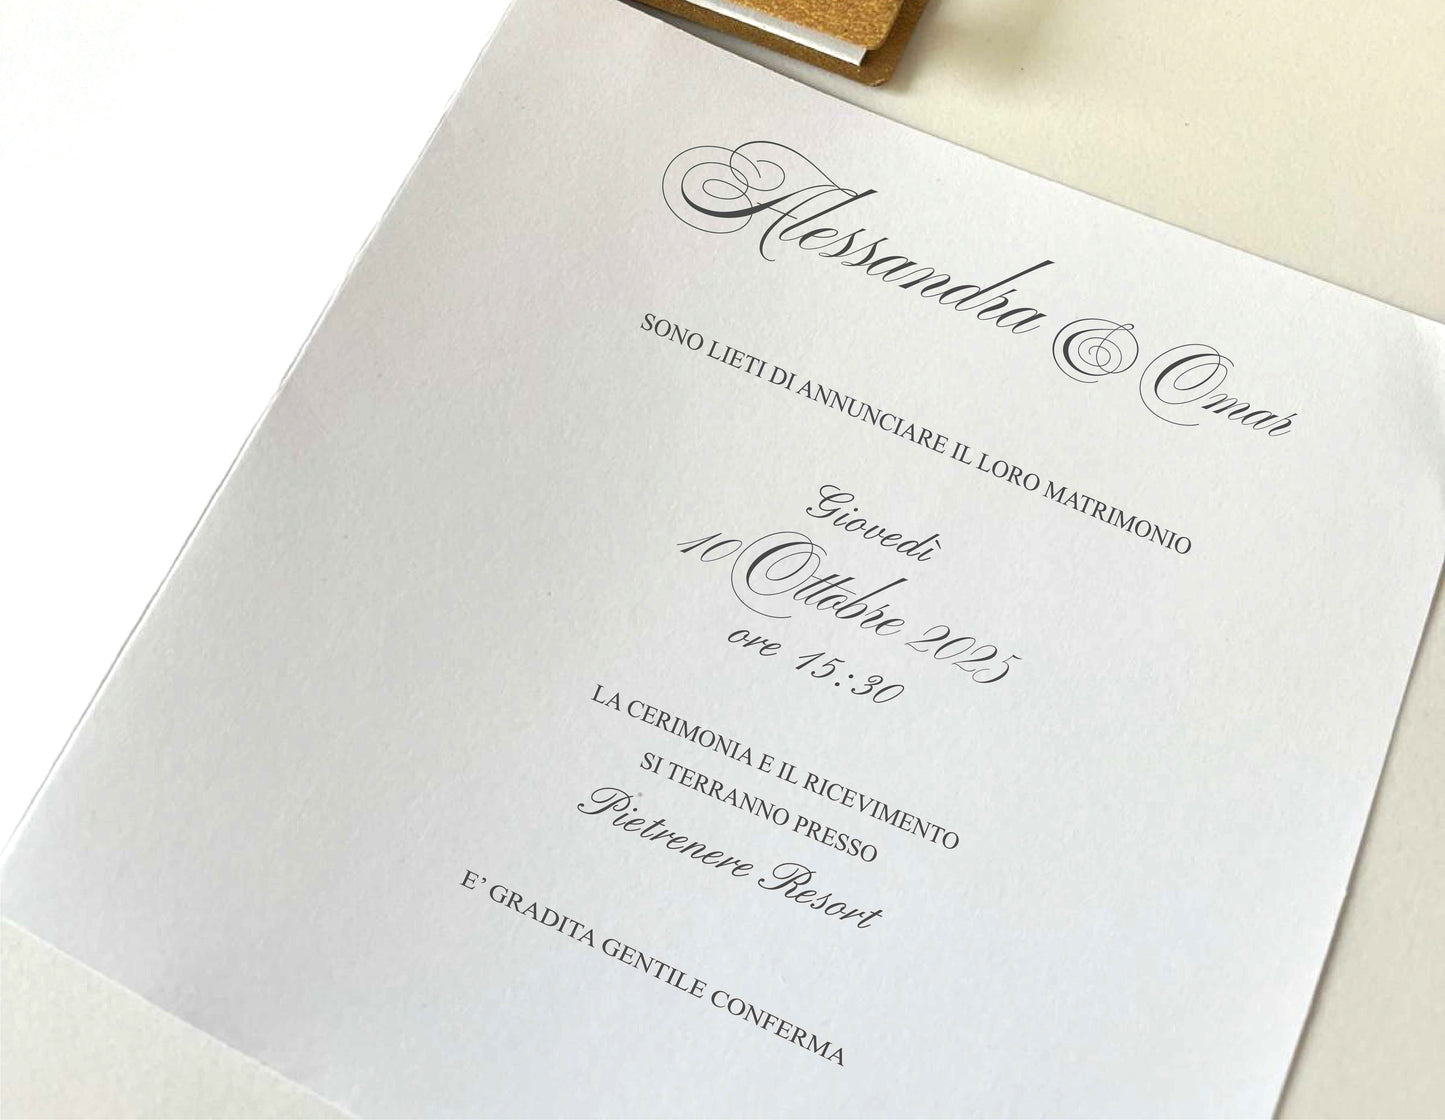 Alessandra & Omar
SONO LIETI DI ANNUNCIARE IL LORO MATRIMONIO
Giovedì
10 Ottobre 2025
ore 15:30
LA CERIMONIA E IL RICEVIMENTO
SI TERRANNO PRESSO
Pietrenere Resort
E’ GRADITA GENTILE CONFERMA